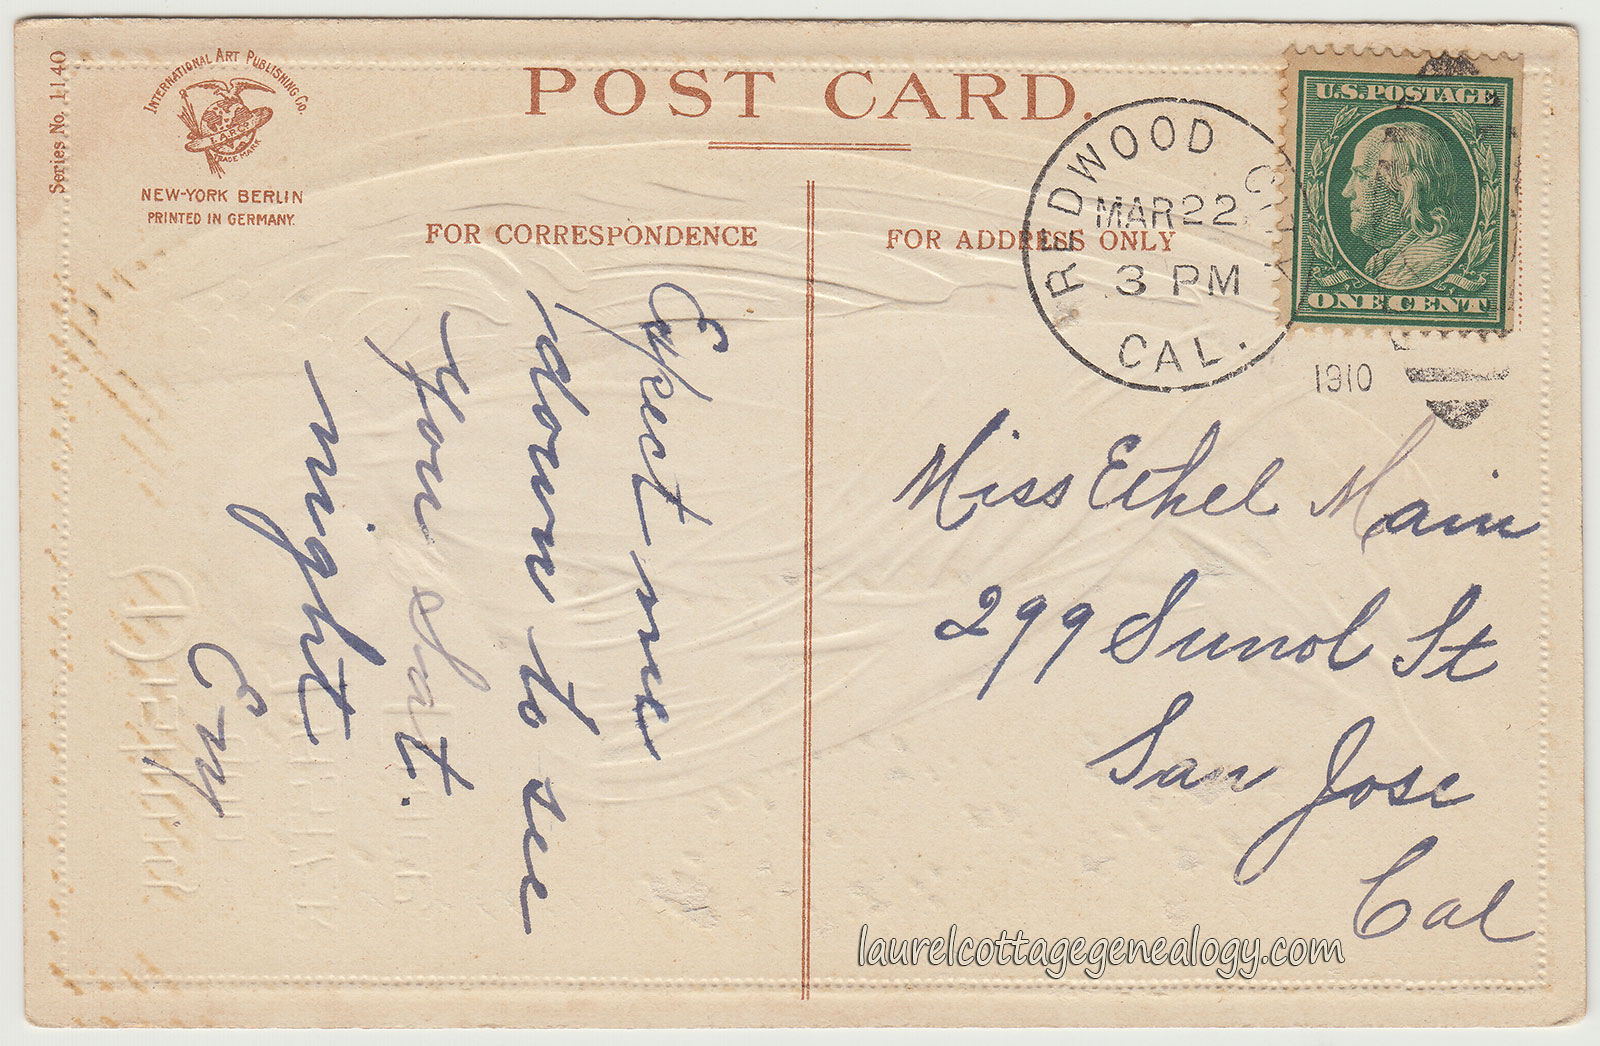 Series No. 1140
INTERNATIONAL ART PUBLISHING CO.
I.A.P.C.
TRADE MARK
NEW-YORK BERLIN
PRINTED IN GERMANY.
POST CARD.
FOR CORRESPONDENCE
FOR ADDRESS ONLY
REDWOOD CITY
MAR 22
3 PM
CAL.
1910
U.S. POSTAGE
ONE CENT
Expect me
down to see
you Sat.
night
Emy
Miss Ethel Main
299 Sunol St
San Jose
Cal
laurelcottagegenealogy.com